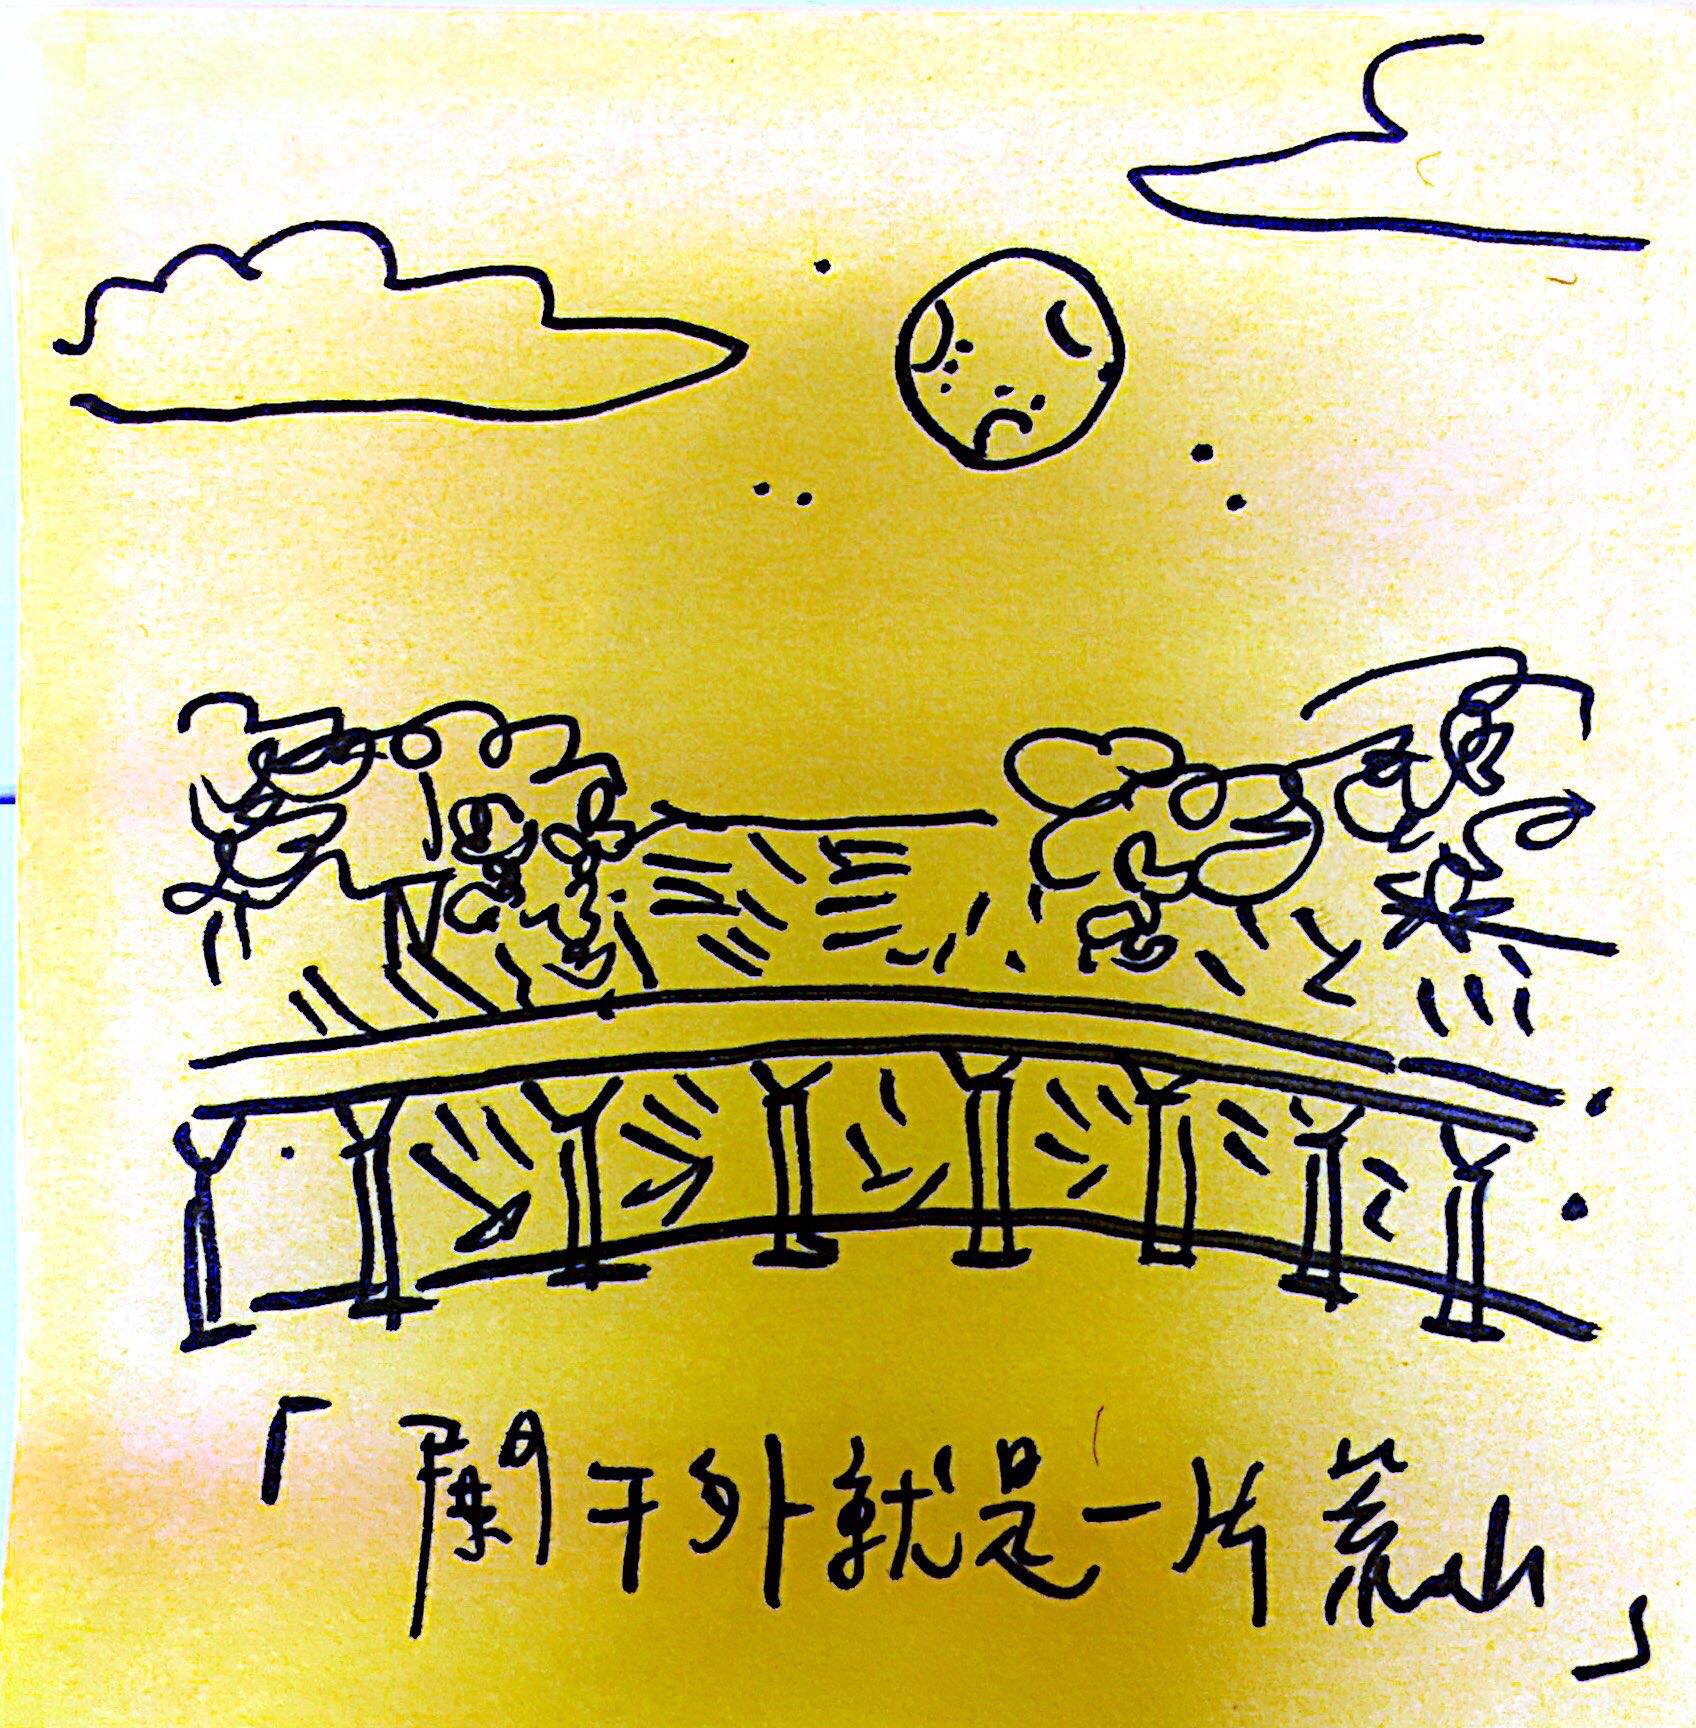 「闌干外就是一片荒山」